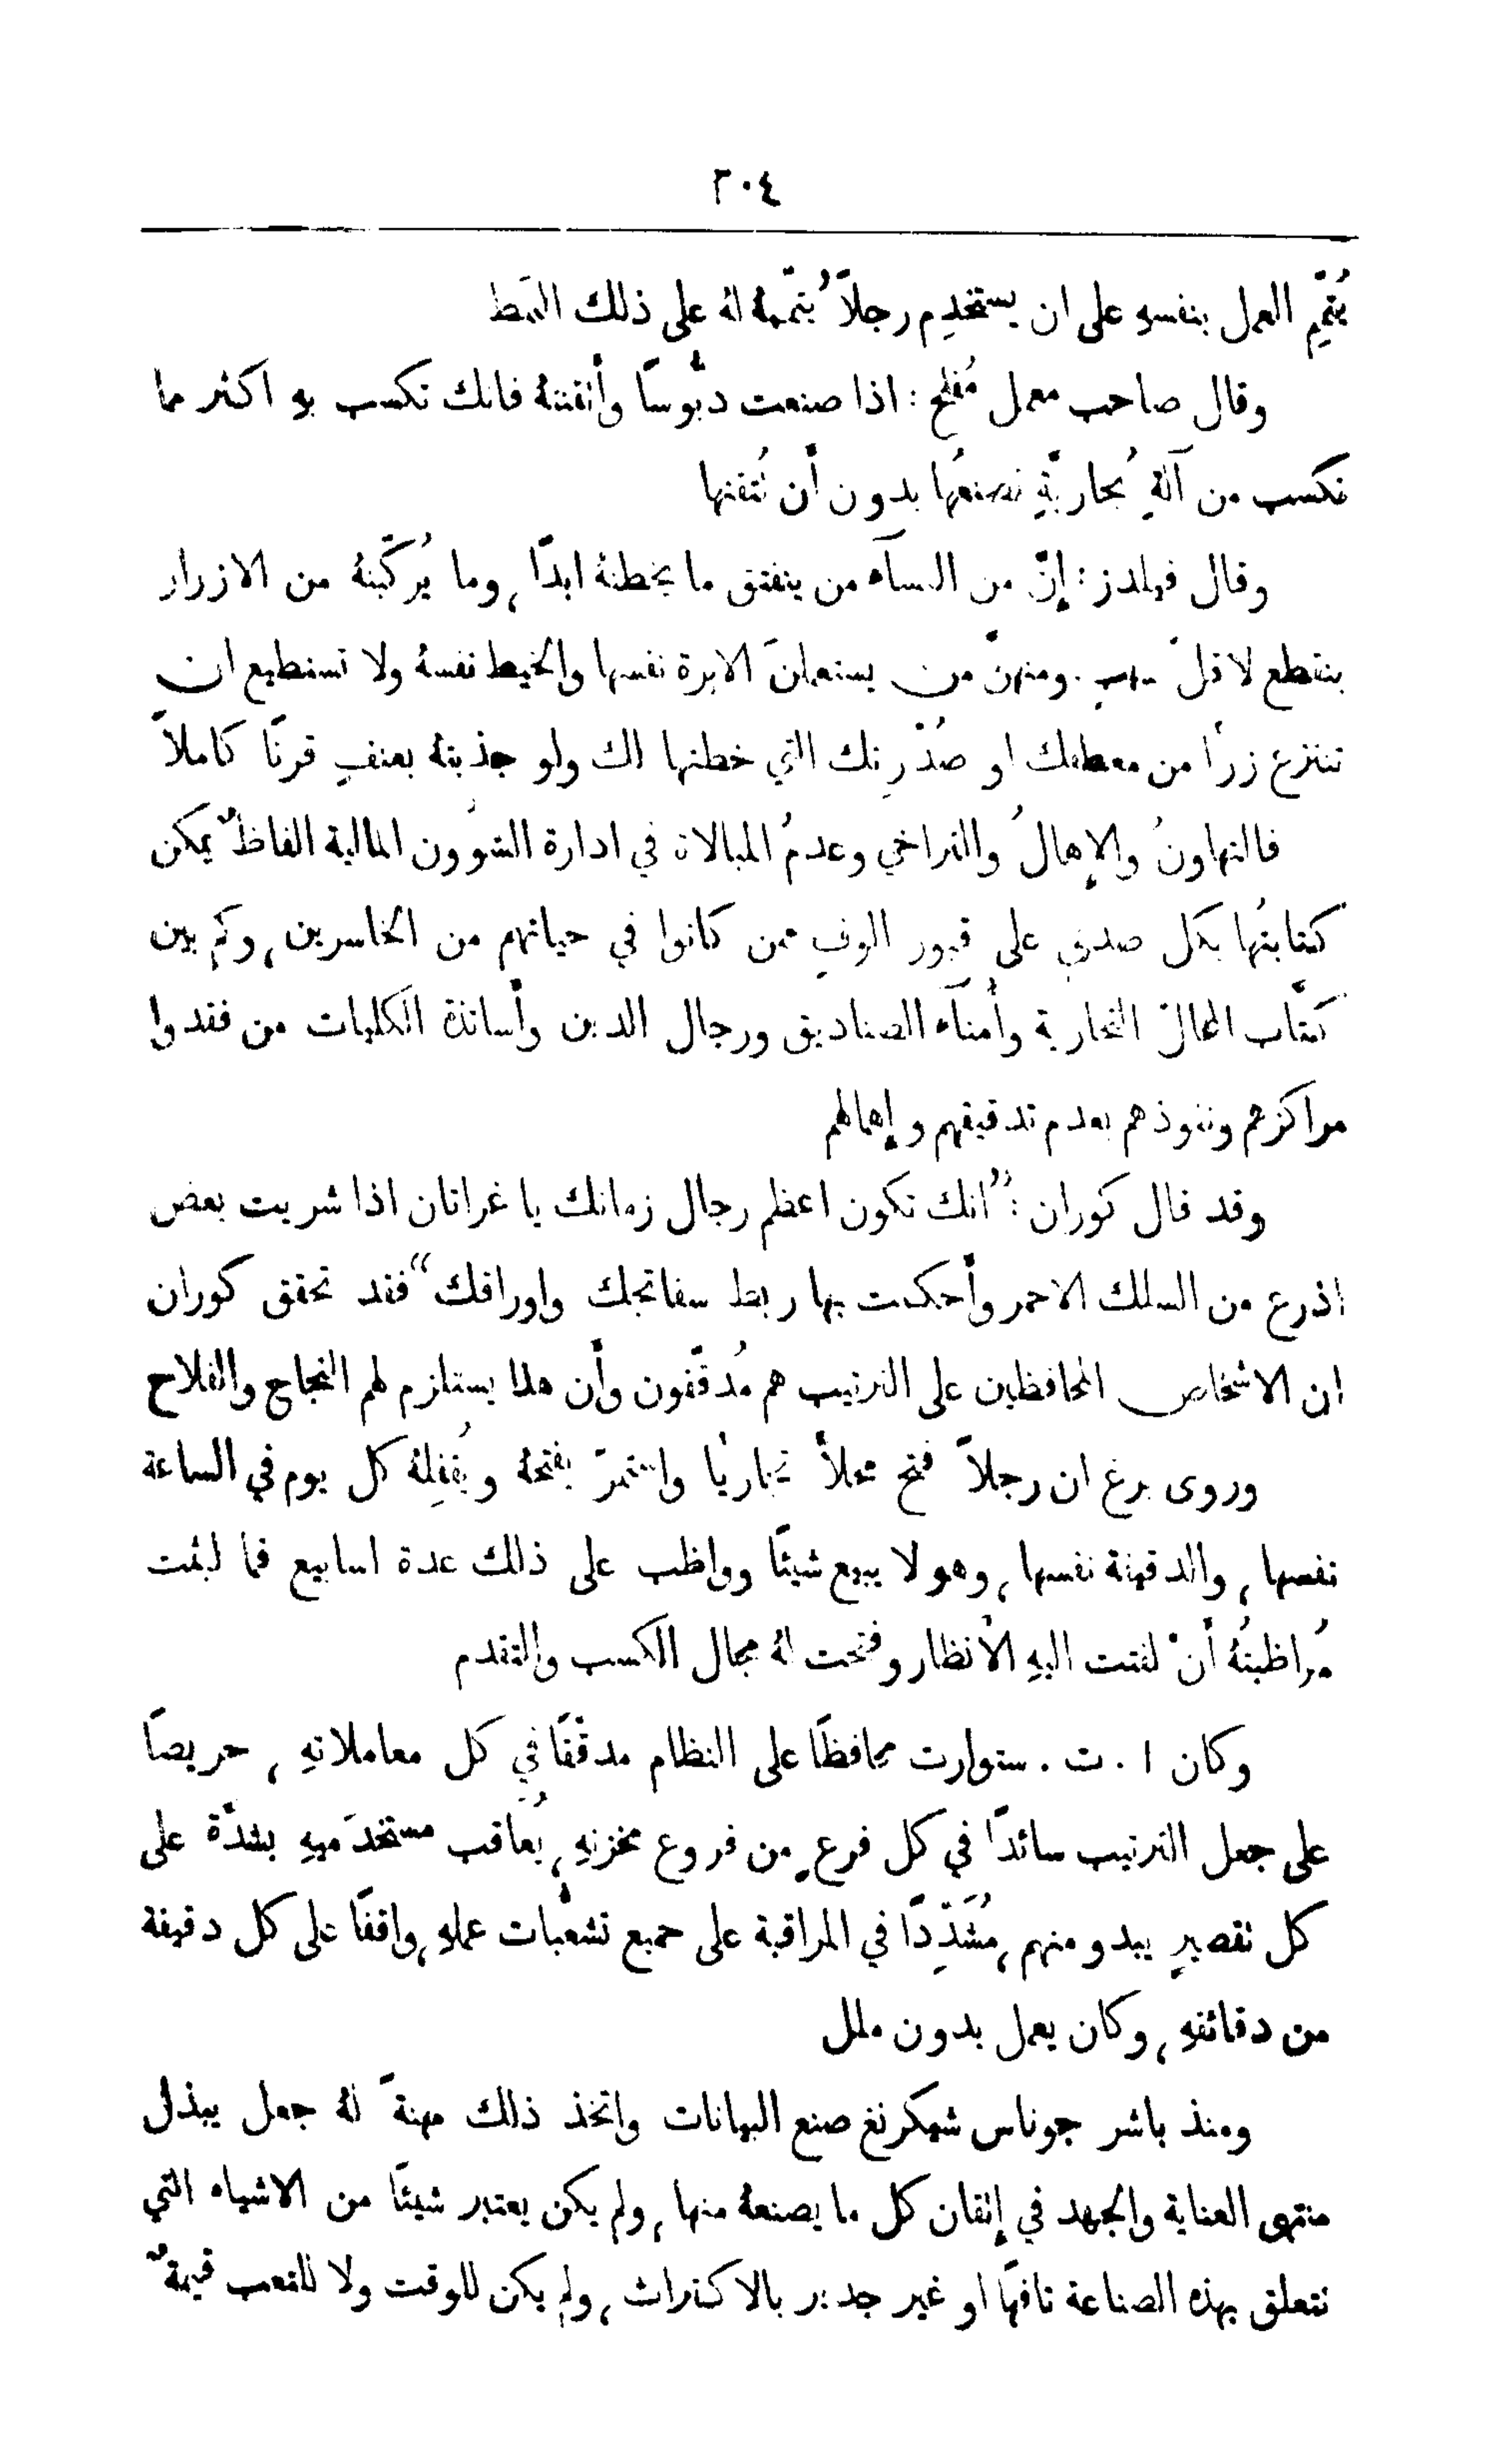 ٣٠٤
يُتمِّم العمل بنفسهِ على ان يستخدِم رجلاً يُتمّمهُ لهُ على ذلك النمَط
وقال صاحب معمل مُفلح : اذا صنعت دبُّوسًا وأَتقنتهُ فانك تكسب بهِ اكثر مما
تكسب من آلةٍ بُخاريَّةٍ تصنعُها بدون أَن تُتقنها
وقال فيلدز : إِنّ من النسآء من ينفتق ما يخطنهُ ابدًا ، وما يُركّبنهُ من الازرار
ينقطع لاقلّ سببٍ . ومنهنّ من يستعملنَ الابرة نفسها والخيط نفسهُ ولا تستطيع ان
تنتزع زرًّا من معطفك او صُدْرتك التي خطنها لك ولو جذبتهُ بعنفٍ قرنًا كاملاً
فالتهاونُ والإِهمالُ والتراخي وعدمُ المبالاة في ادارة الشؤُون المالية الفاظٌ يمكن
كتابتُها بكل صدقٍ على قبور الوفٍ ممن كانوا في حياتهم من الخاسرين ، وكم بين
كتَّاب المحالّ التجارية وأُمنآء الصناديق ورجال الدين وأَساتذة الكليات من فقدوا
مراكزهم ونفوذهم بعدم تدقيقهم وإِهمالهم
وقد قال كوران : ”انك تكون اعظم رجال زمانك يا غراتان اذا شريت بعض
اذرع من السلك الاحمر وأَحكمت بها ربط سفاتجك واوراقك“ فقد تحقق كوران
ان الاشخاص المحافظين على الترتيب هم مُدقّقون وأَن هذا يستلزم لهم النجاح والفلاح
وروى برغ ان رجلاً فتح محلاًّ تجاريًّا واستمرّ يفتحهُ ويُقفِلهُ كل يوم في الساعة
نفسها ، والدقيقة نفسها ، وهو لا يبيع شيئًا وواظب على ذلك عدة اسابيع فما لبثت
مُواظبتُهُ أَنْ لفتت اليهِ الأَنظار وفتحت لهُ مجال الكسب والتقدم
وكان ا . ت . ستوارت محافظًا على النظام مدقّقًا في كل معاملاتهِ ، حريصًا
على جعل الترتيب سائدًا في كل فرعٍ من فروع مخزنهِ ، يُعاقب مستخدَميهِ بشدَّة على
كل تقصيرٍ يبدو منهم ، مُشَدِّدًا في المراقبة على جميع تشعُّبات عملهِ ، واقفًا على كل دقيقة
من دقائقهِ ، وكان يعمل بدون ملل
ومنذ باشر جوناس شيكرنغ صنع البيانات واتخذ ذلك مهنةً لهُ جعل يبذل
منتهى العناية والجهد في إِتقان كل ما يصنعهُ منها ، ولم يكن يعتبر شيئًا من الاشياء التي
تتعلق بهذه الصناعة تافهًا او غير جدير بالاكتراث ، ولم يكن للوقت ولا للتعب قيمةٌ